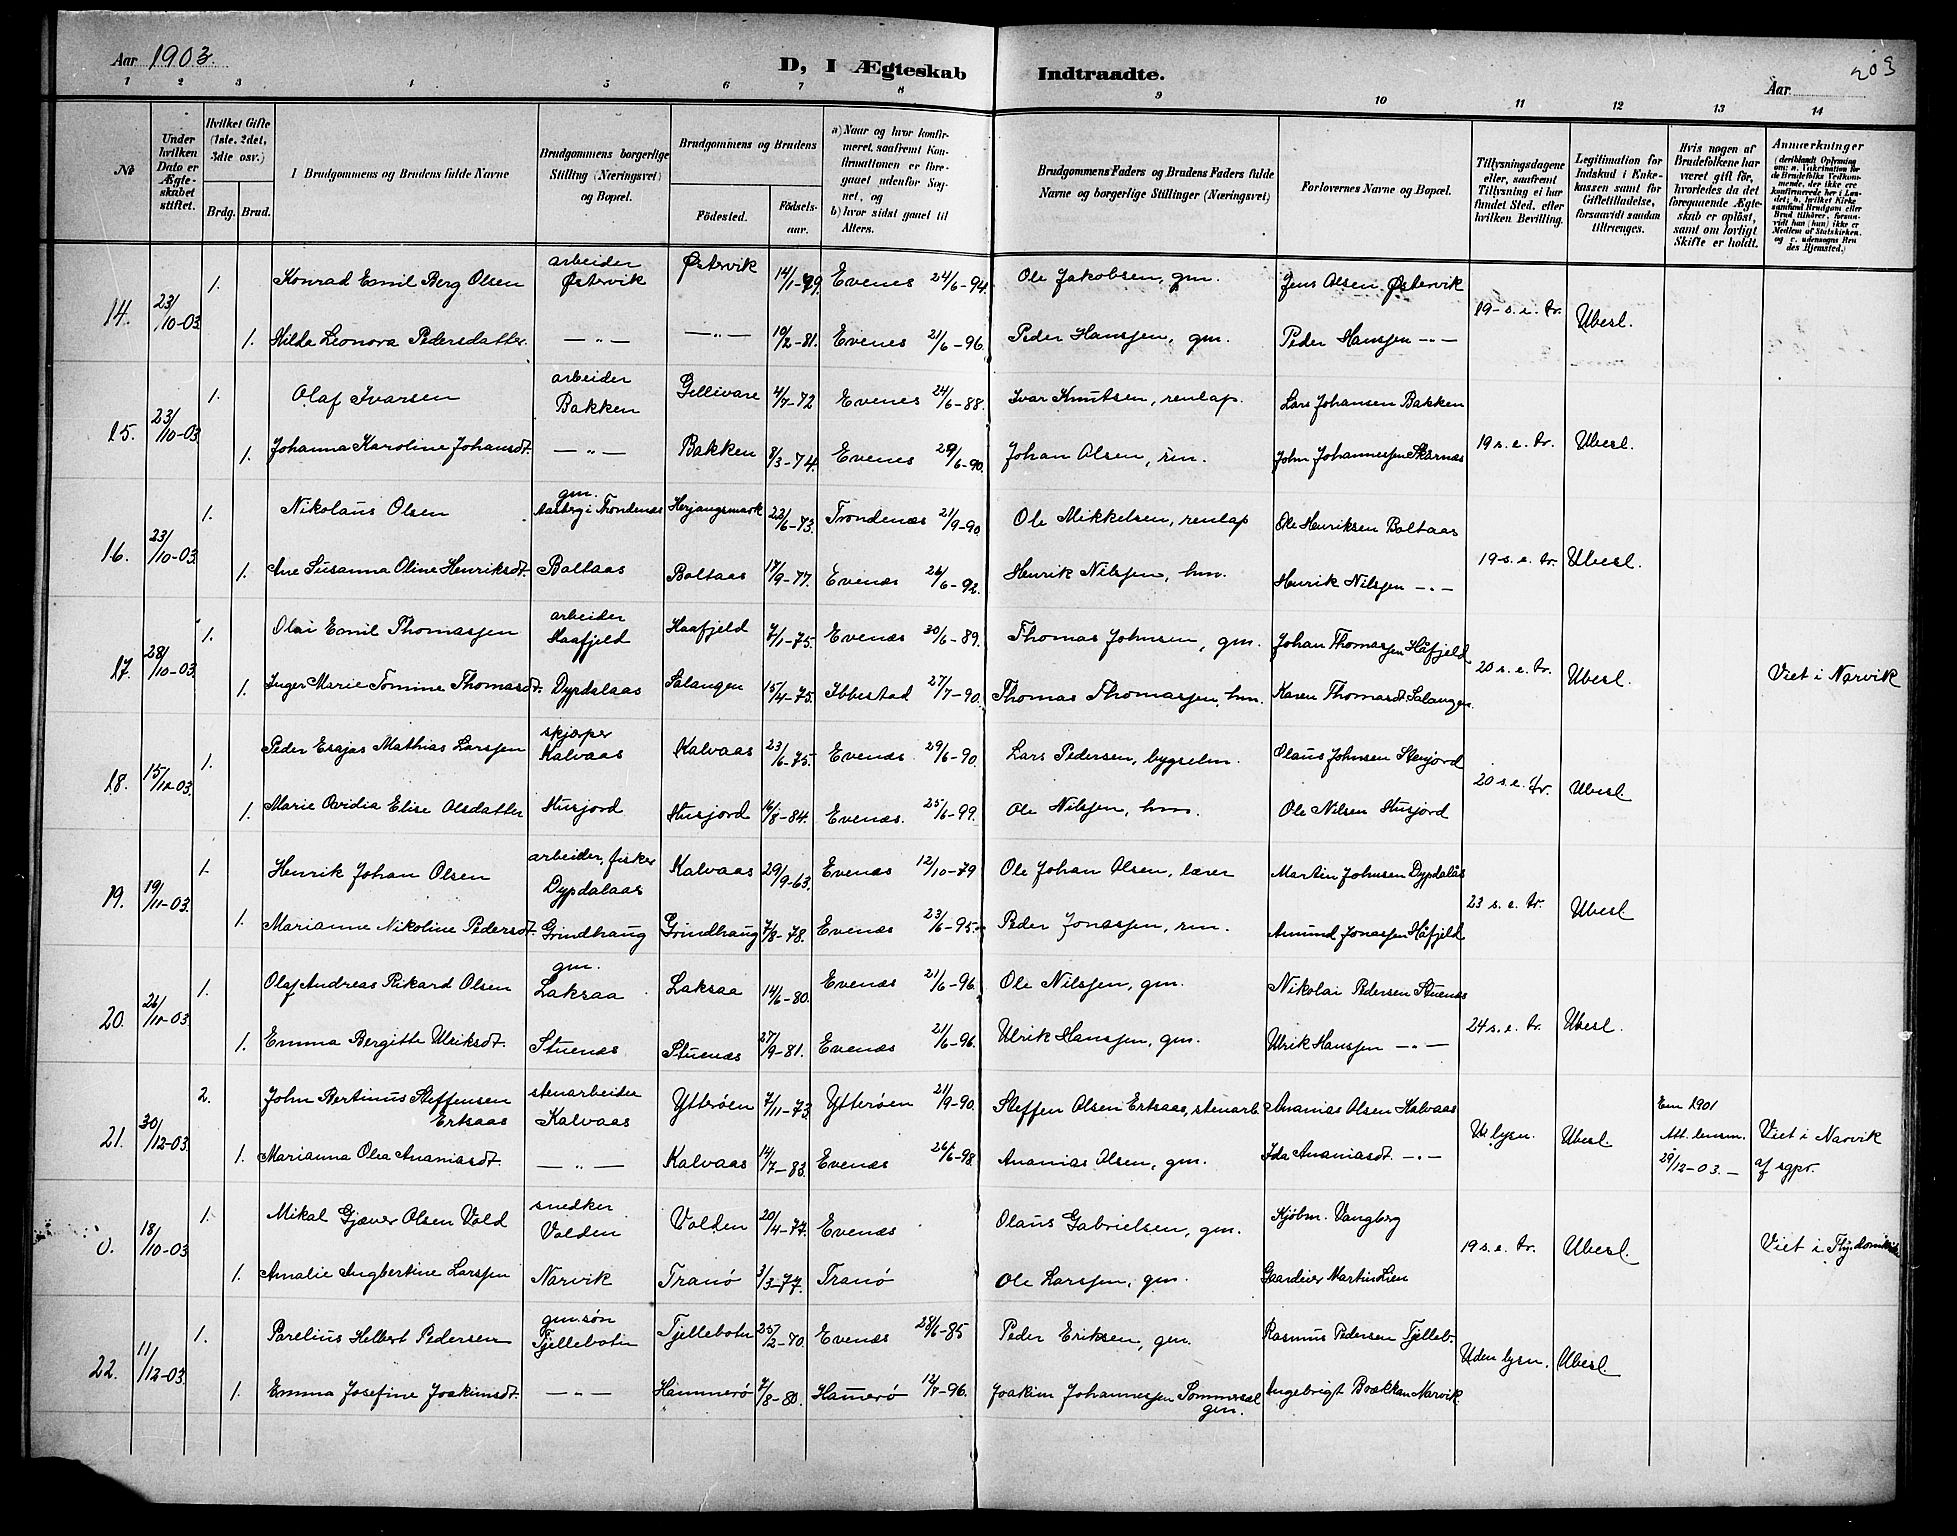 Aar 1903.
D, I Ægteskab Indtraadte.
203
Aar
1 2 3 4 5 6 7 8 9 10 11 12 13 14
No
Under hvilken Dato er Ægteskabet stiftet.
Hvilket Gifte (1ste, 2det, 3die osv.)
Brdg. Brud.
I Brudgommens og Brudens fulde Navne
Brudgommens borgerlige Stilling (Næringsvei) og Bopæl.
Brudgommens og Brudens
Födested. Födselsaar.
a) Naar og hvor konfirmeret, saafremt Konfirmationen er foregaaet udenfor Sognet, og
b) hvor sidst gaaet til Alters.
Brudgommens Faders og Brudens Faders fulde Navne og borgerlige Stillinger (Næringsvei)
Forlovernes Navne og Bopæl.
Tillysningsdagene eller, saafremt Tillysning ei har fundet Sted, efter hvilken Bevilling.
Legitimation for Indskud i Enkekassen samt for Giftetilladelse, forsaavidt saadan tiltrænges.
Hvis nogen af Brudefolkene har været gift för, hvorledes da det foregaaende Ægteskab er oplöst, samt om lovligt Skifte er holdt.
Anmærkninger
14. 23/10-03 1. Konrad Emil Berg Olsen arbeider Østervik Østervik 14/1-79. Evenes 24/6-94 Ole Jakobsen, gm. Jens Olsen Østervik 19-s.e.tr. Ubesl.
1. Hilda Leonora Pedersdatter. —"— —"— 19/2-81. Evenes 21/6-96. Peder Hanssen, gm. Peder Hanssen —"—
15. 23/10-03 1. Olaf Ivarsen arbeider Bakken Gellivare 4/7-72 Evenes 24/6-88. Ivar Knutsen, renlap. Lars Johansen Bakken 19 s.e.tr. Ubesl.
1. Johanna Karoline Johansdt. —"— Bakken 8/3-74. Evenes 29/6-90. Johan Olsen, rm. John Johannessen Skarnæs
16. 23/10-03 1. Nikolaus Olsen gm. i Trondenæs Herjangsmark 22/6-73. Trondenæs 21/9-90. Ole Mikkelsen, renlap Ole Henriksen Boltaas 19-s.e.tr. Ubesl.
1. Ane Susanna Oline Henriksdt. Boltaas Boltaas 17/9-77. Evenæs 26/6-92. Henrik Nilssen, hm. Henrik Nilssen —"—
17. 28/10-03 1. Olai Emil Thomassen arbeider Haafjeld Haafjeld 7/1-75. Evenæs 30/6-89. Thomas Johnsen, gm. Johan Thomassen Håfjeld 20 s.e.tr. Ubesl. Viet i Narvik
1. Inger Marie Tomine Thomasdt. Dypdalaas Salangen 15/4-75. Ibbestad 27/7-90. Thomas Thomassen, hm. Karen Thomasdt. Salangen.
18. 15/12-03. 1. Peder Esajas Mathias Larssen skjæper Kalvaas Kalvaas 23/6-75. Evenæs 29/6-90. Lars Pedersen, bygselm. Olaus Johnsen 20 s.e.tr. Ubesl
1. Marie Ovidia Elise Olsdatter Husjord Husjord 16/8-84. Evenæs. 25/6-99. Ole Nilssen, hm. Ole Nilsen Husjord
19. 19/11-03. 1. Henrik Johan Olsen arbeider, fisker Dypdalaas Kalvaas 29/9-63. Evenæs 12/10-79 Ole Johan Olsen, lærer Martin Johnsen Dypdalås 23 s.e.tr. Ubesl
1. Marianne Nikoline Pedersdt. Grindhaug Grindhaug 7/8-78. Evenæs 23/6-95. Peder Jonassen, rm. Amund Jonassen Håfjeld
20. 26/11-03. 1. Olaf Andreas Rikard Olsen gm. Laksaa Laksaa 14/6-80. Evenæs 21/6-96. Ole Nilssen, gm. Nikolai Pedersen Stuenæs 24 s.e.tr. Ubesl.
1. Emma Bergitte Ulriksdt. Stuenæs. Stuenæs 27/9-81. Evenæs 21/6-96. Ulrik Hanssen, gm. Ulrik Hanssen —"—
21. 30/12-03. 2. John Bertinus Steffensen Ertsaas stenarbeider Kalvaas Ytterøen 7/11-73. Ytterøen 21/9-90. Steffen Olsen Ertsaas, stenarb. Ananias Olsen Kalvaas U. lysn. Ubesl. Em 1901 Att. lensm. 29/12-03.- Viet i Narvik af sgpr.
1. Marianna Olea Ananiasdt. —"— Kalvaas 14/7-83. Evenæs 26/6-98. Ananias Olsen, gm. Ida Ananiasdt. —"—
0. 18/10-03. 1. Mikal Gjæver Olsen Vold snedker Volden Volden 20/4-77. Evenæs Olaus Gabrielsen, gm. Kjøbm. Vangberg 19 s.e.tr. Ubesl. Viet i
1. Amalie Angbertine Larssen Narvik Tranö 3/3-77. Tranö Ole Larssen, gm. Gaardeier Martin Lien
22. 11/12-03. 1. Parelius Helbert Pedersen gm.søn Fjellebotn Fjellebotn 25/2-70. Evenæs 28/6-85 Peder Eriksen, gm. Rasmus Pedersen Fjelleb. Uden lysn. Ubesl.
1. Emma Josefine Joakimsdt. —"— Hammerö 7/8-80. Hamerö 12/8-96. Joakim Johannessen Sommersæl gm. Angebrigt Brækkan Narvik.